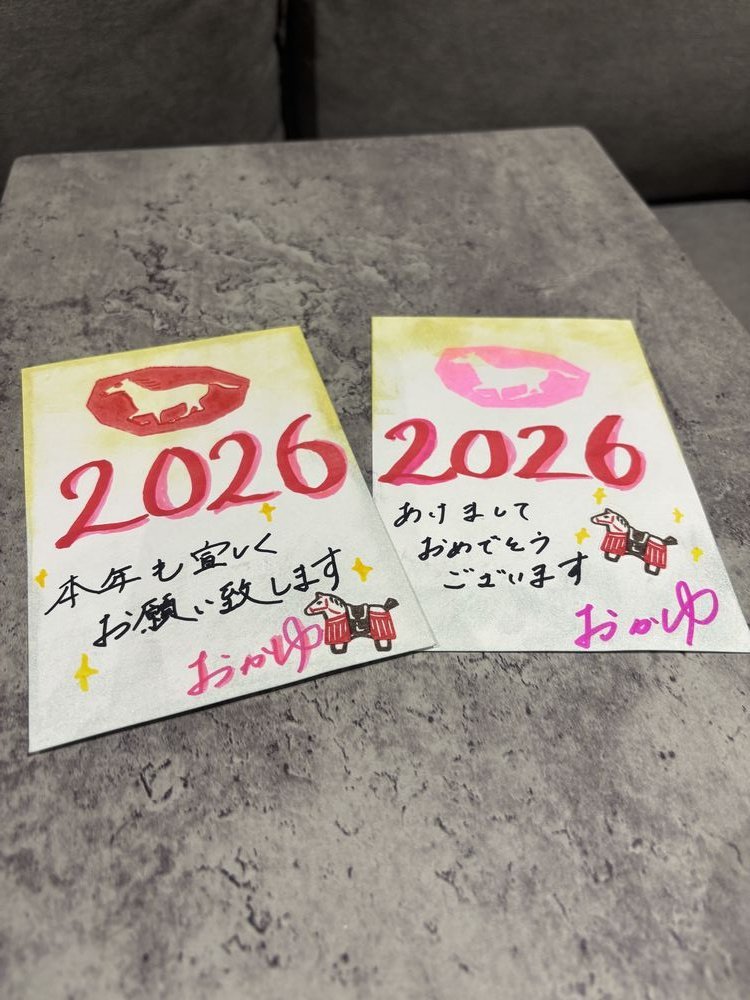 2026
本年も宜しく
お願い致します
おかゆ
2026
あけまして
おめでとう
ございます
おかゆ